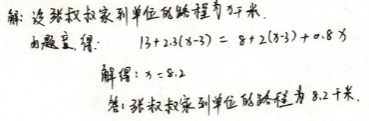 解: 设张叔叔家到单位的路程为x千米.
由题意, 得: 13+2.3(x-3) = 8+2(x-3)+0.8x
解得: x=8.2
答: 张叔叔家到单位的路程为8.2千米.